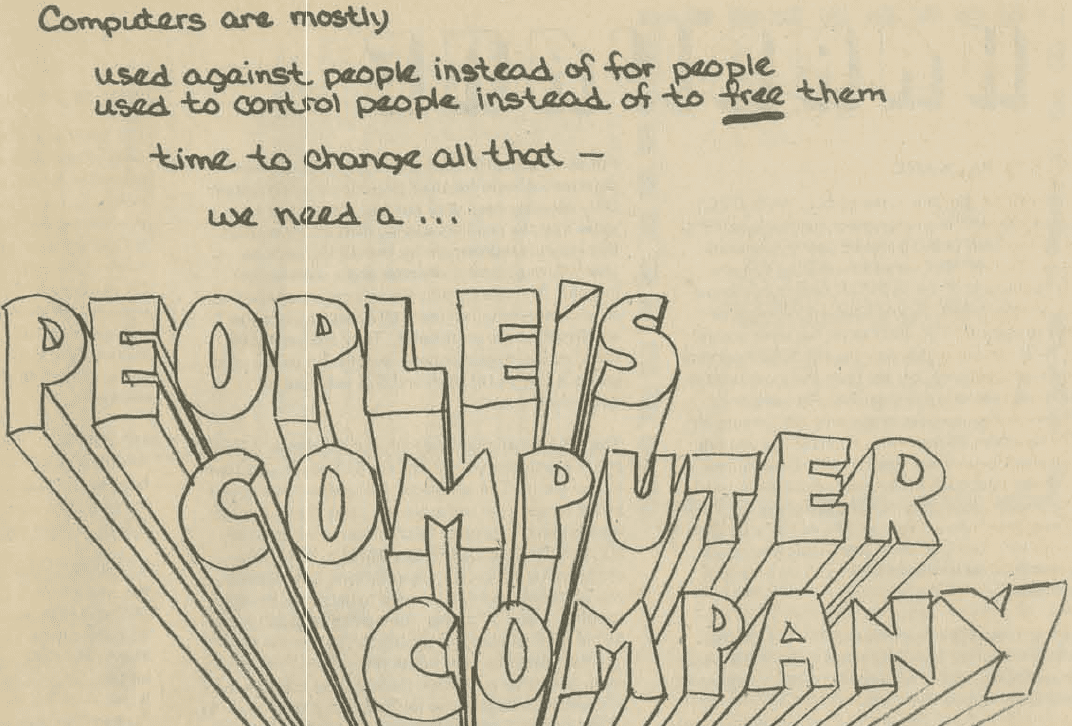 Computers are mostly
used against people instead of for people
used to control people instead of to free them
time to change all that —
we need a ...
PEOPLE'S
COMPUTER
COMPANY